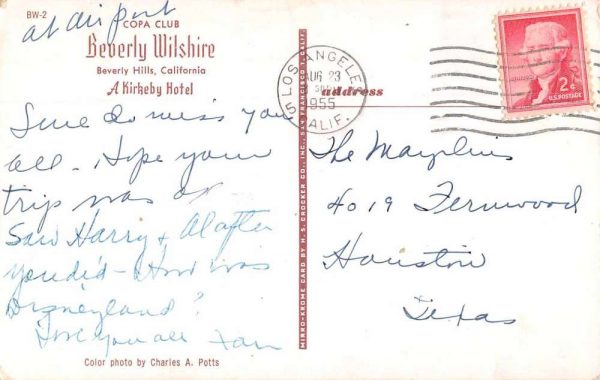 BW-2
at airport
COPA CLUB
Beverly Wilshire
Beverly Hills, California
A Kirkeby Hotel
Sure do miss you
all - Hope your
trip was
Saw Harry + Al after
you did - How was
Disneyland?
Love you all
Color photo by Charles A. Potts
MIRRO-KROME CARD BY H. S. CROCKER CO., INC., SAN FRANCISCO 1, CALIF.
LOS ANGELES
AUG 23
1955
CALIF.
address
2¢
U.S. POSTAGE
The
4019 Fernwood
Houston
Texas